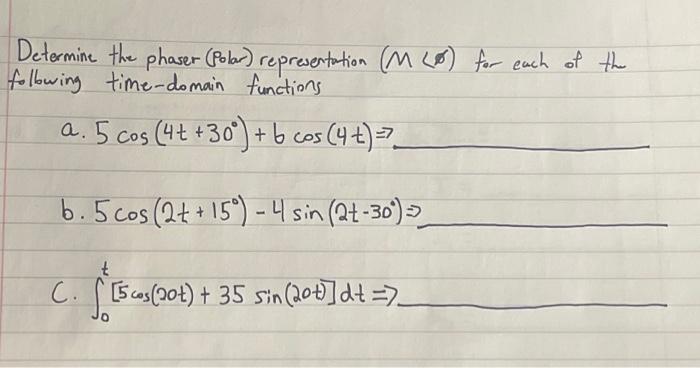 Determine the phaser (Polar) representation (M <ø) for each of the
following time-domain functions
a. 5 cos (4t +30°) + 6 cos (4t) => ____
b. 5 cos (2t + 15°) - 4 sin (2t - 30°) => ____
C. ∫₀ᵗ [5 cos(20t) + 35 sin(20t)] dt => ____